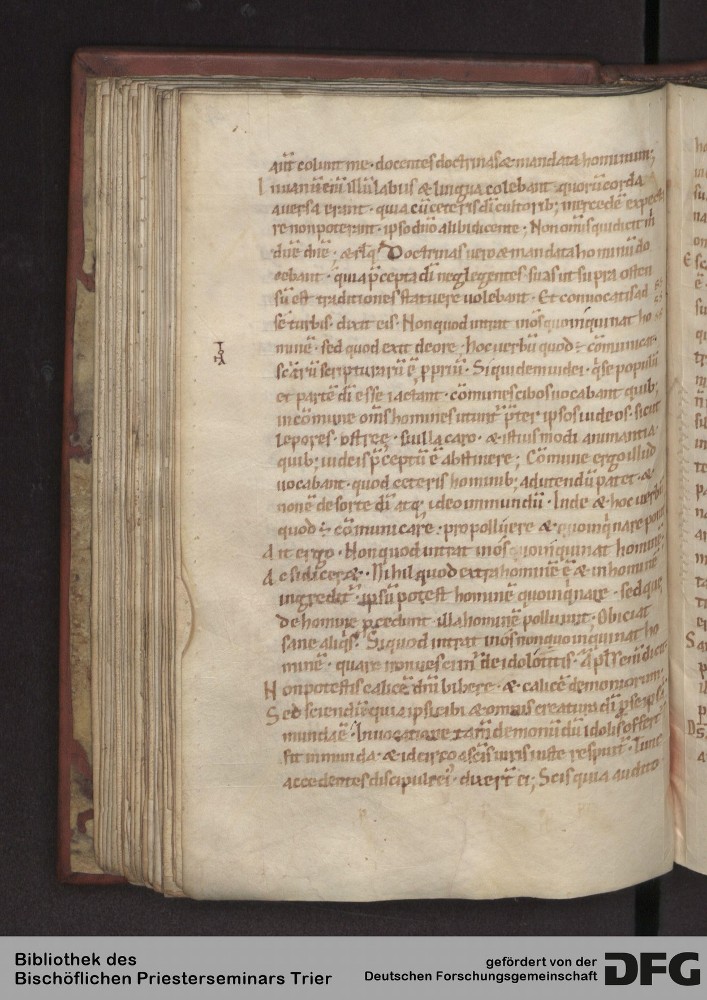 aut colunt me · docentes doctrinas & mandata hominum;
In uanū eni illū labiis & lingua colebant quorū corda
auersa erant · quia cū ceteris di cultorib; mercedē expecta
re non poterant · ipso dno alibi dicente; Non omis qui dicit m
dne dne; & rlq Doctrinas uero & mandata hominū do
cebant · quia pcepta di neglegentes suas ut supra osten
sū est traditiones statuere uolebant · Et conuocatis ad
se turbis dixit eis · Non quod intrat in os quoinquinat ho
minē · sed quod exit de ore; hoc uerbū quod ÷ cōmunicat
scarū scripturarū ē ppriū · Siquidem iudei qise populū
et partē di esse iactant · cōmunes cibos uocabant quib;
in cōmune oms homines utunt pter ipsos iudeos · sicut
lepores · ostreę · suilla caro · & istius modi animantia
quib; iudeis pceptū ē abstinere; Cōmune ergo illud
uocabant · quod ceteris hominib; ad utendū patet · &
non ē de sorte di atq; ideo inmundū · Inde & hoc uerbū
quod ÷ cōmunicare · pro polluere & quoinqnare ponit
Ait ergo · Non quod intrat in os quoinquinat hominē;
Ac si dicer& · Nihil quod extra hominē ē & in hominē
ingredit · ipsū potest hominē quoinqnare · sed que
de homine pcedunt illa hominē polluunt · Obiciat
sane aliqs · Si quod intrat in os non quoinquinat ho
minē · quare non uescim de idolotitis · Apls eni dicit
Non potestis calicē dni bibere · & calicē demoniorum
Sed sciendū quia ipsi cibi & omnis creatura di p se ipsa
munda ē · Inuocatione tam demonū dū idolis offert
fit inmunda · & idcirco a scis uiris iuste respuit · Tunc
accedentes discipuli ei · dixert ei; Scis quia audito
Bibliothek des
Bischöflichen Priesterseminars Trier
gefördert von der
Deutschen Forschungsgemeinschaft
DFG